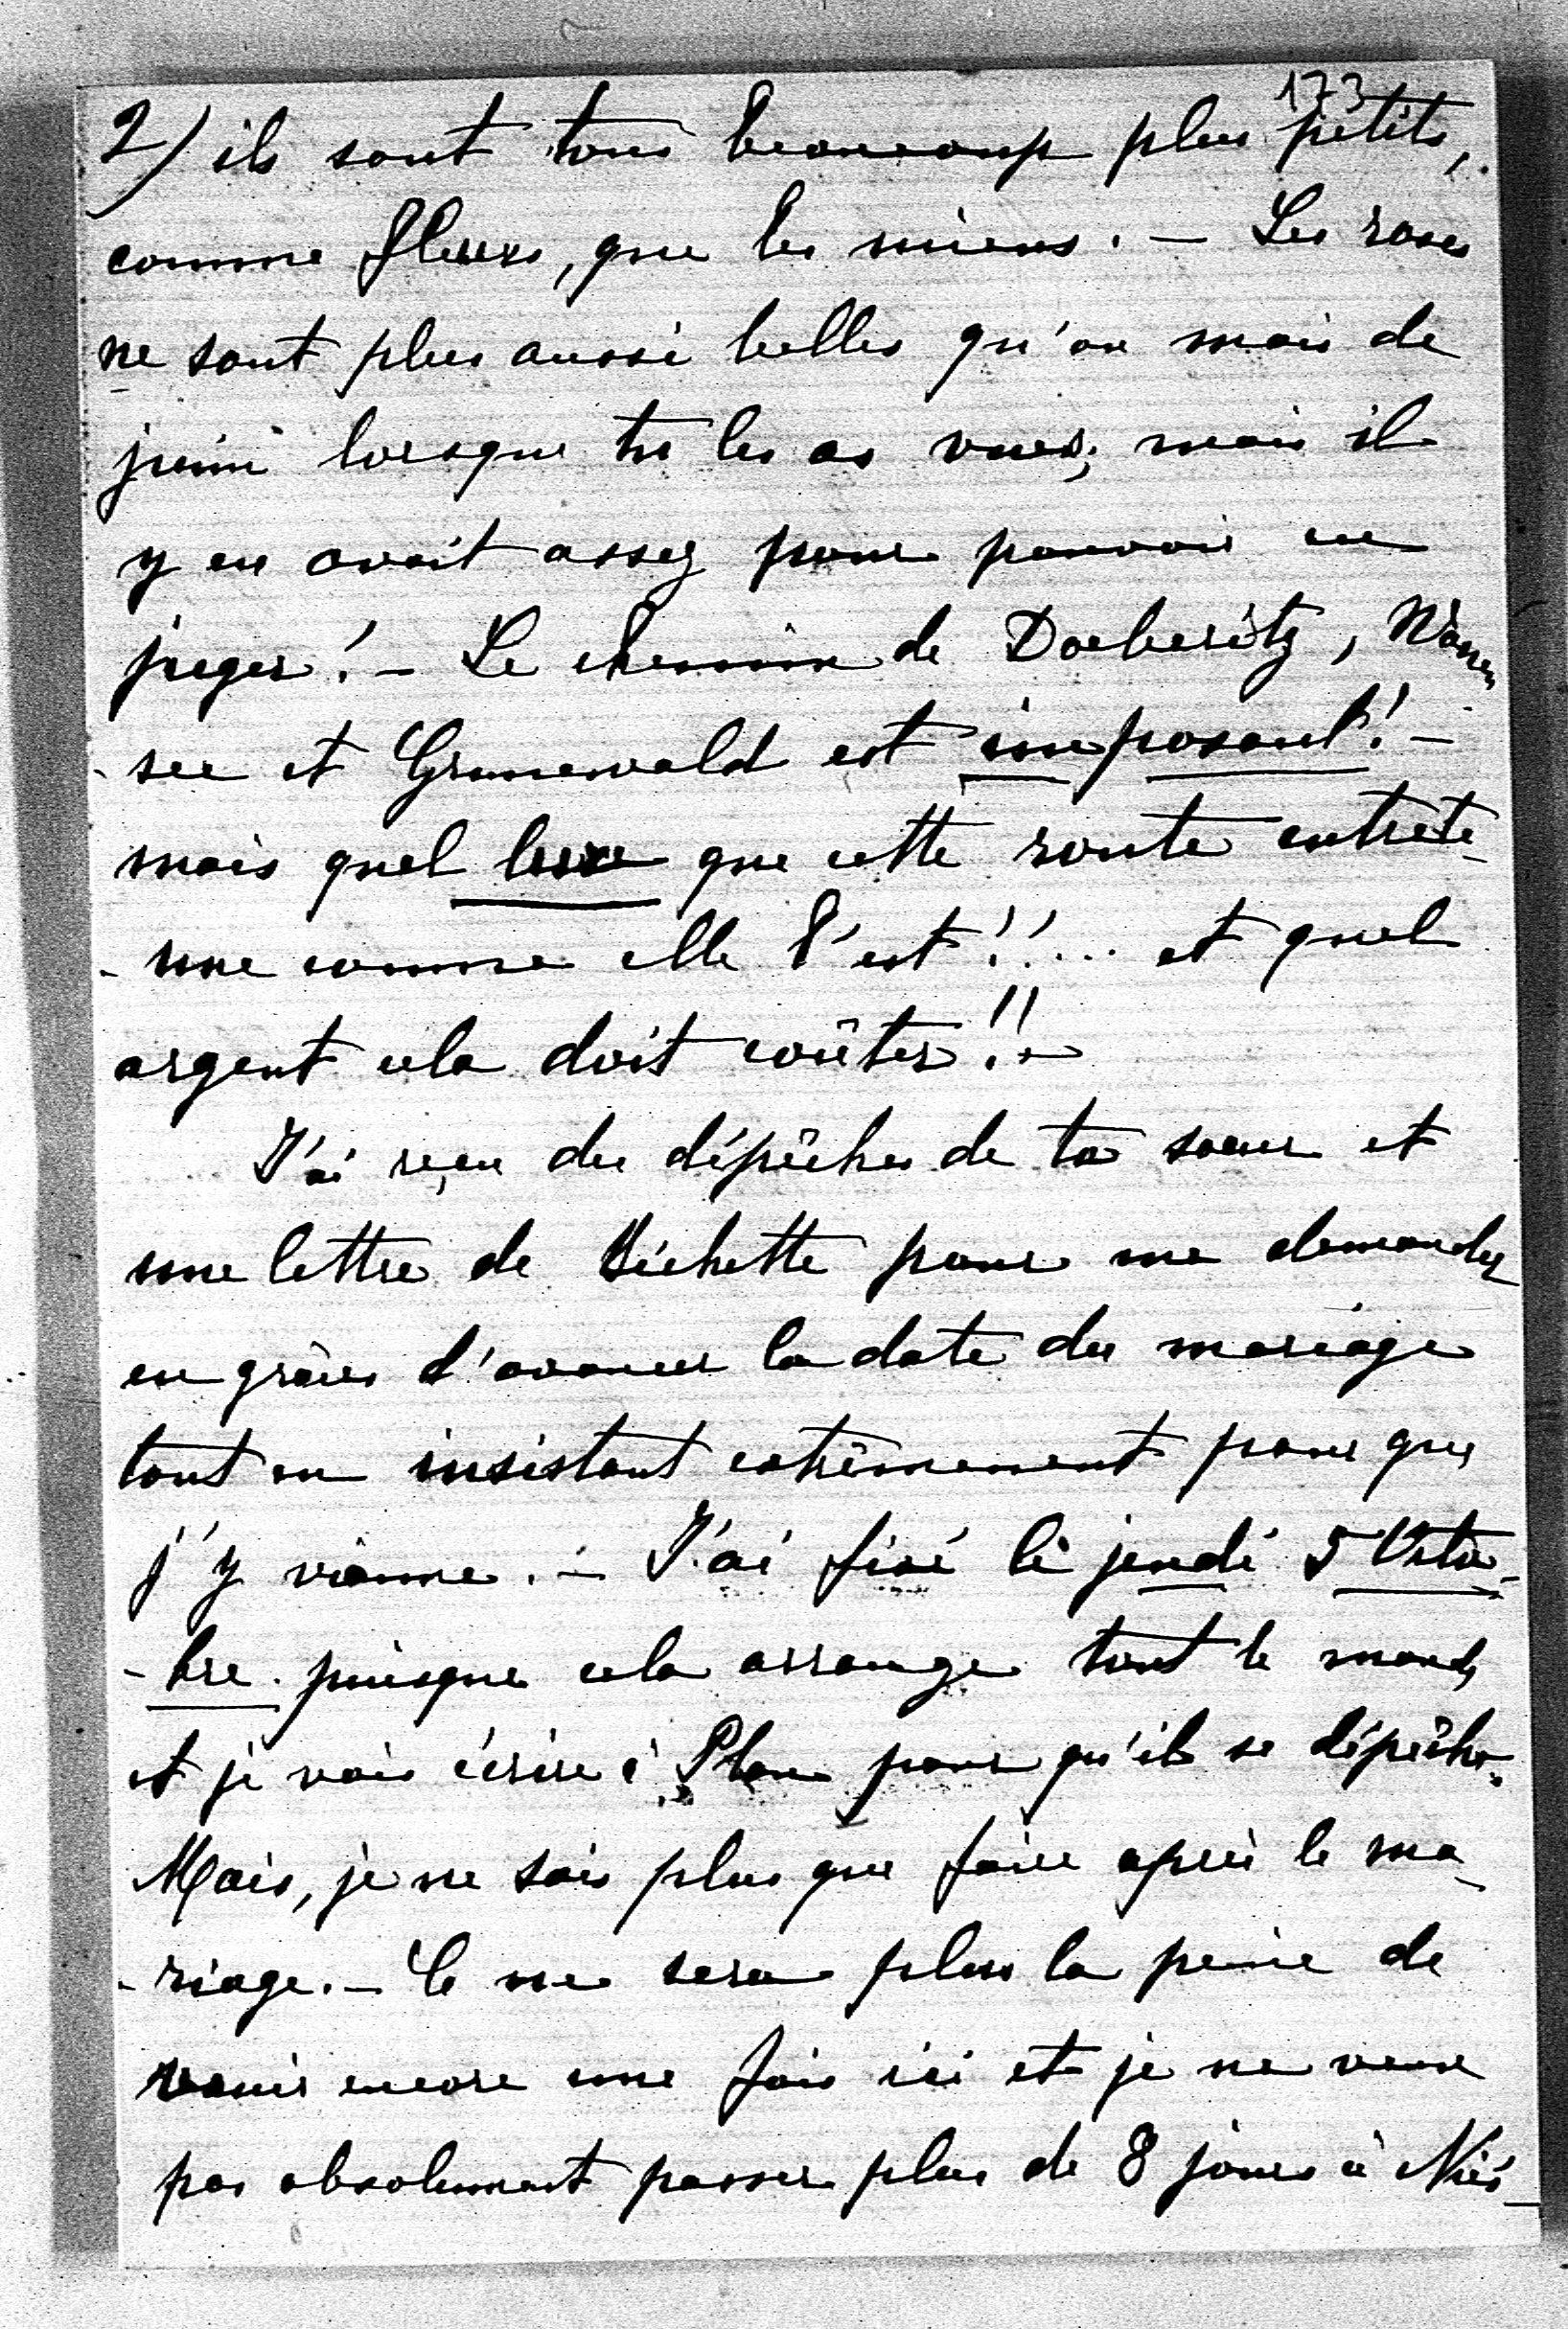 173
2/ ils sont tous beaucoup plus petits,
comme fleurs, que les miens. — Les roses
ne sont plus aussi belles qu'au mois de
juin lorsque tu les as vues; mais il
y en avait assez pour pouvoir en
juger! — Le chemin de Doeberitz, Wann
-see et Grunewald est imposant! —
mais quel luxe que cette route entrete-
-nue comme elle l'est!!... et quel
argent cela doit coûter!! —
J'ai reçu des dépêches de ta sœur et
une lettre de Bichette pour me demander
en grâce d'avancer la date du mariage
tout en insistant extrêmement pour que
j'y vienne. — J'ai fixé le jeudi 5 Octo-
-bre puisque cela arrange tout le monde
et je vais écrire à Plon pour qu'il se dépêche.
Mais, je ne sais plus que faire après le ma-
-riage. — Ce ne sera plus la peine de
venir encore une fois ici et je ne veux
pas absolument passer plus de 8 jours à Niés-